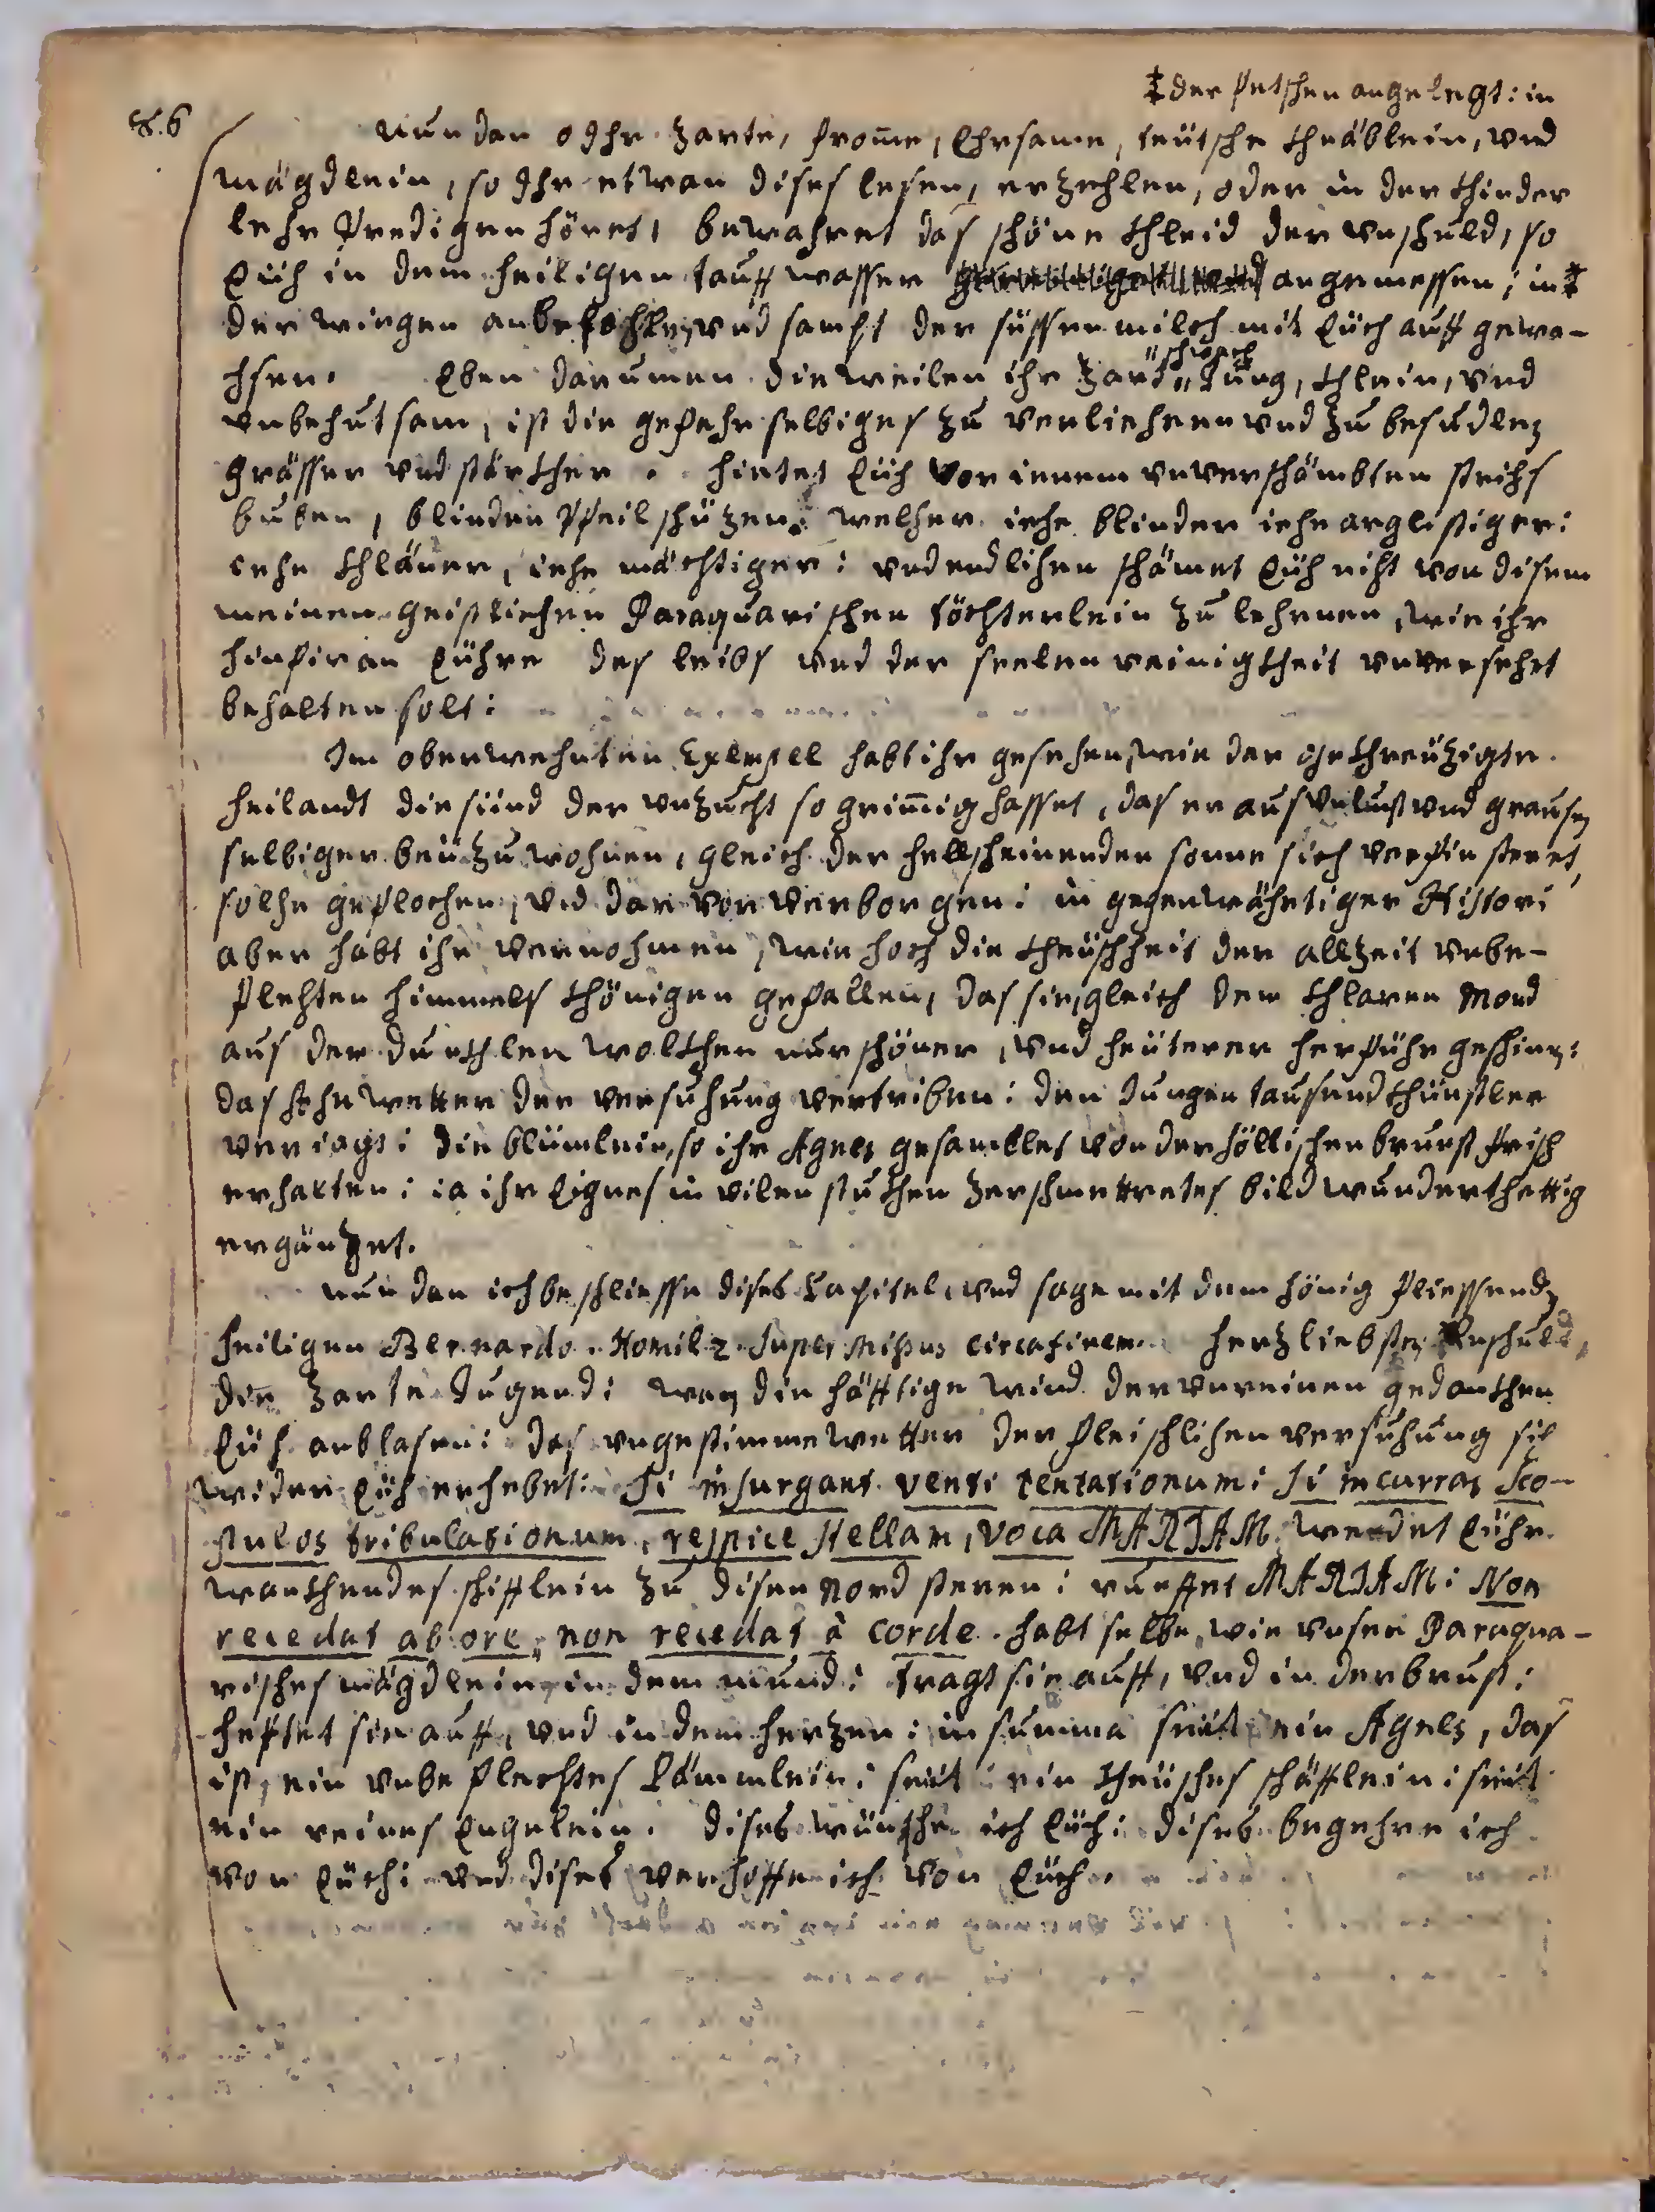 ‡ der fetschen angelegt: in
§. 6 nun dan o Jhr zarte, frome, Ehrsame, teütsche Kнäblein, vnd
mägdlein, so Jhr etwan dises lesen, erzehlen, oder in der Khinder
lehr Predigen höret, bewahret das schöne Khleid der vnschuld, so
Eüch in dem heiligen tauff wasser angemessen; in ‡
der wiegen anbefohlen, vnd sampt der süssen milch mit Eüch auff gewa-
chsen. Eben darumen dieweilen ihr zart, schwach, Jung, Khlein, vnd
vnbehutsam, ist die gefahr selbiges zu verliehren vnd zu besudlen
grösser vnd stärkher. hietet Eüch vor ienem vnverschämbten
buben, blinden Pfeil schüzen, welcher iehe blinder iehe arglistiger:
iehe Khläner, iehe mächtiger: vnd endlichen schämet Eüch nicht von disem
meinen geistlichen Paraquarischen töchterlein zu lehrnen, wie ihr
hinfiran Eühre des leibs vnd der seelen reinigkheit vnversehrt
behalten solt:
Im oberwehnten Exempel habt ihr gesehen, wie der gekhreüzigte
heilandt die sünd der vnzucht so grimig hasset, das er aus vnlust vnd grausen
selbiger beüzuwohnen, gleich der hellscheinender sonne sich verfinsteret,
solche geflochen, vnd darvon verborgen: in gegenwährtiger Histori
aber habt ihr vernohmen, wie hoch die Kheüschheit der allzeit vnbe-
flekhten himmels Khönigen gefallen, das sie, gleich dem Khlaren Mond
aus der dunkhlen wolkhen nur schöner, vnd heüterer herführ geschinen:
das wetter der versuchung vertriben: den Jungen tausendkhünstler
veriagt: die blümlein, so ihr Agnes gesamblet von der höllischen brunst frisch
erhalten: ia ihr Eignes in vilen stukhen zerschmettretes bild wunderthettig
ergänzet.
nun dan ich beschliesse dises Capitel, vnd sage mit dem hönig fliessenden
heiligen Bernardo. Homil 2. super Missus circa finem. herzliebste vnschuld,
die zarte Jugend: wan die häfftige wind der vnreinen gedankhen
Eüch anblasen: das vngestimme wetter der fleischlichen versuchung sich
wider Eüch erhebet: si insurgant venti tentationum: si incurras sco-
pulos tribulationum, respice stellam, voca MARIAM. wendet Eühr
wankhendes schifflein zu disen Nord steren: rueffet MARIAM: Non
recedat ab ore, non recedat à corde. habt selbe, wie vnser Paraqua-
risches mägdlein, in dem mund: tragt sie auff, vnd in der brust:
heftet sie auff, vnd in dem herzen: in summa seüt ein Agnes, das
ist, ein vnbeflekhtes Lämmlein: seüt ein Kheüsches schäfflein: seüt
ein reines Engelein. dises wünsche ich Eüch: dises begehre ich
von Eüch: vnd dises verhoffe ich von Eüch.